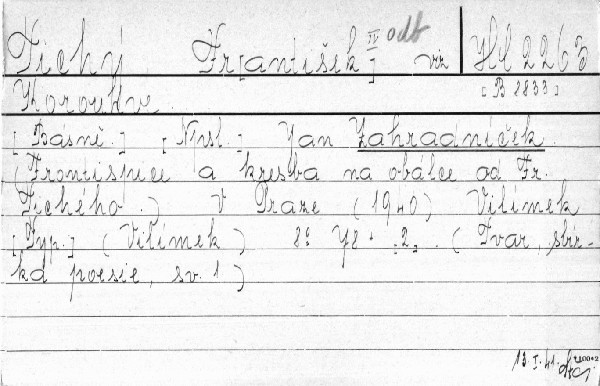 Tichý Fr[antišek] IV odb viz Hd 2263
[B 2833]
Korouhve.
[Básně.] [Nysl.] Jan Zahradníček.
(Frontispice a kresba na obálce od Fr.
Tichého.) V Praze (1940) Vilímek
[Typ.] (Vilímek) 8° 48. [2]. (Tvar, sbír-
ka poesie, sv. 1)
13.I.41.